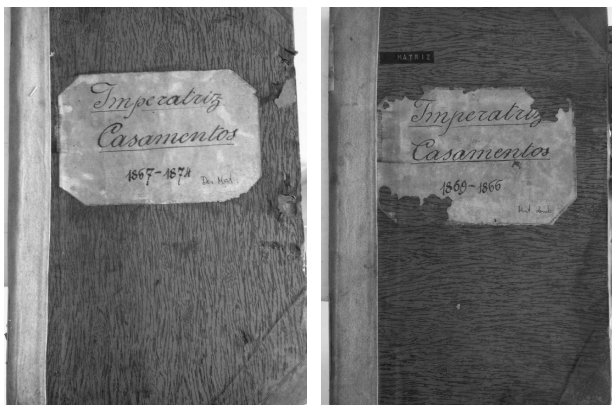 Imperatriz
Casamentos
1867-1874
MATRIZ
Imperatriz
Casamentos
1869-1866